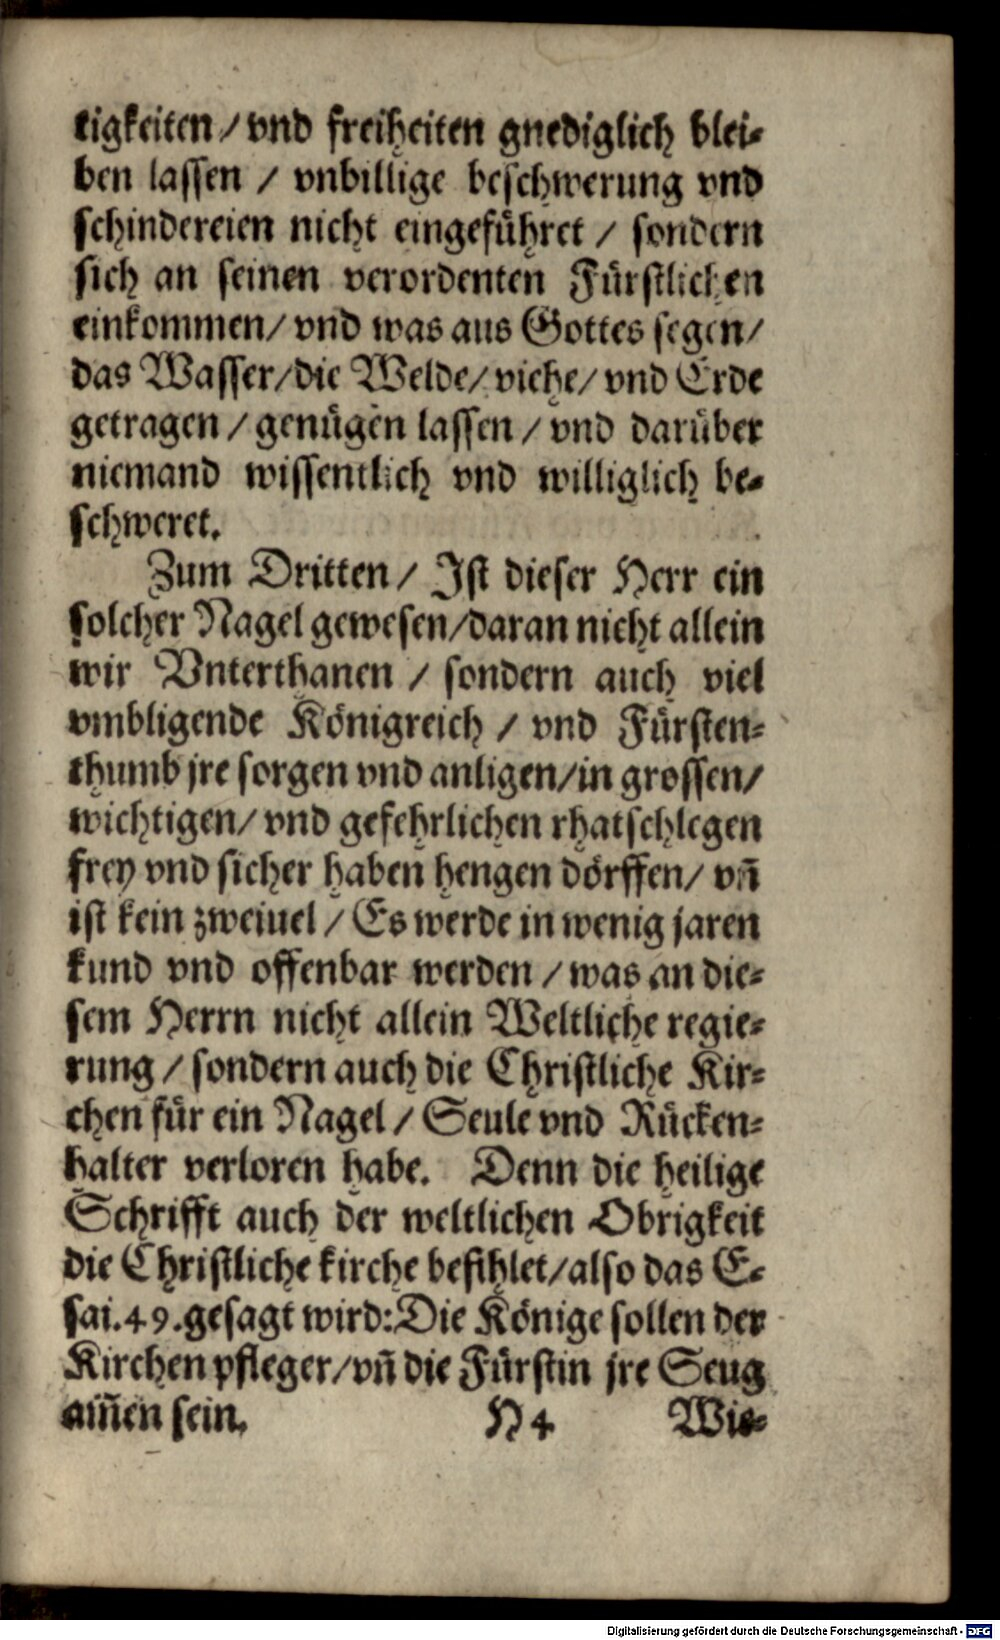 tigkeiten / vnd freiheiten gnediglich blei-
ben lassen / vnbillige beschwerung vnd
schindereien nicht eingeführet / sondern
sich an seinen verordenten Fürstlichen
einkommen / vnd was aus Gottes segen /
das Wasser / die Welde / viehe / vnd Erde
getragen / genügen lassen / vnd darüber
niemand wissentlich vnd williglich be-
schweret.
Zum Dritten / Ist dieser Herr ein
solcher Nagel gewesen / daran nicht allein
wir Vnterthanen / sondern auch viel
vmbligende Königreich / vnd Fürsten-
thumb jre sorgen vnd anligen / in grossen /
wichtigen / vnd gefehrlichen rhatschlegen
frey vnd sicher haben hengen dörffen / vñ
ist kein zweiuel / Es werde in wenig jaren
kund vnd offenbar werden / was an die-
sem Herrn nicht allein Weltliche regie-
rung / sondern auch die Christliche Kir-
chen für ein Nagel / Seule vnd Rücken-
halter verloren habe. Denn die heilige
Schrifft auch der weltlichen Obrigkeit
die Christliche kirche befihlet / also das E-
sai. 49. gesagt wird: Die Könige sollen der
Kirchen pfleger / vñ die Fürstin jre Seug
am̃en sein. H 4 Wie-
Digitalisierung gefördert durch die Deutsche Forschungsgemeinschaft - DFG